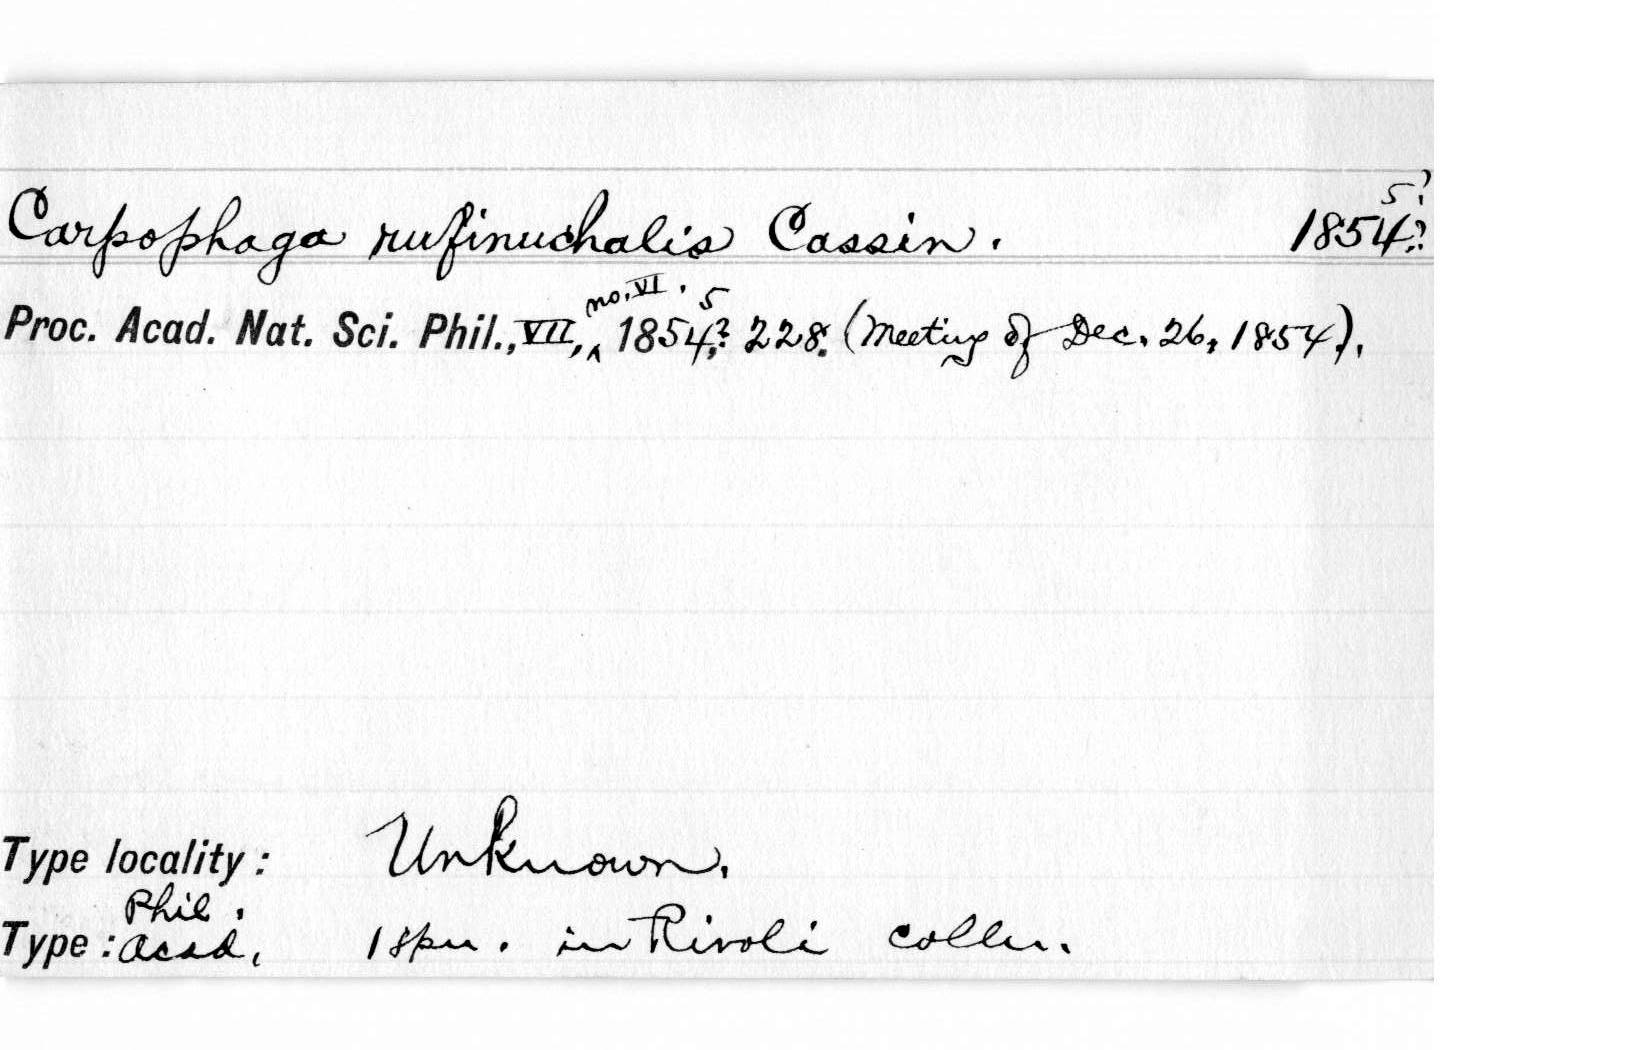 5?
Carpophaga rufinuchalis Cassin. 1854?
no. VI. 5
Proc. Acad. Nat. Sci. Phil., VII, ^ 1854,? 228. (Meeting of Dec. 26, 1854).
Type locality: Unknown.
Phil.
Type: Acad. 1 spn. in Rivoli colln.